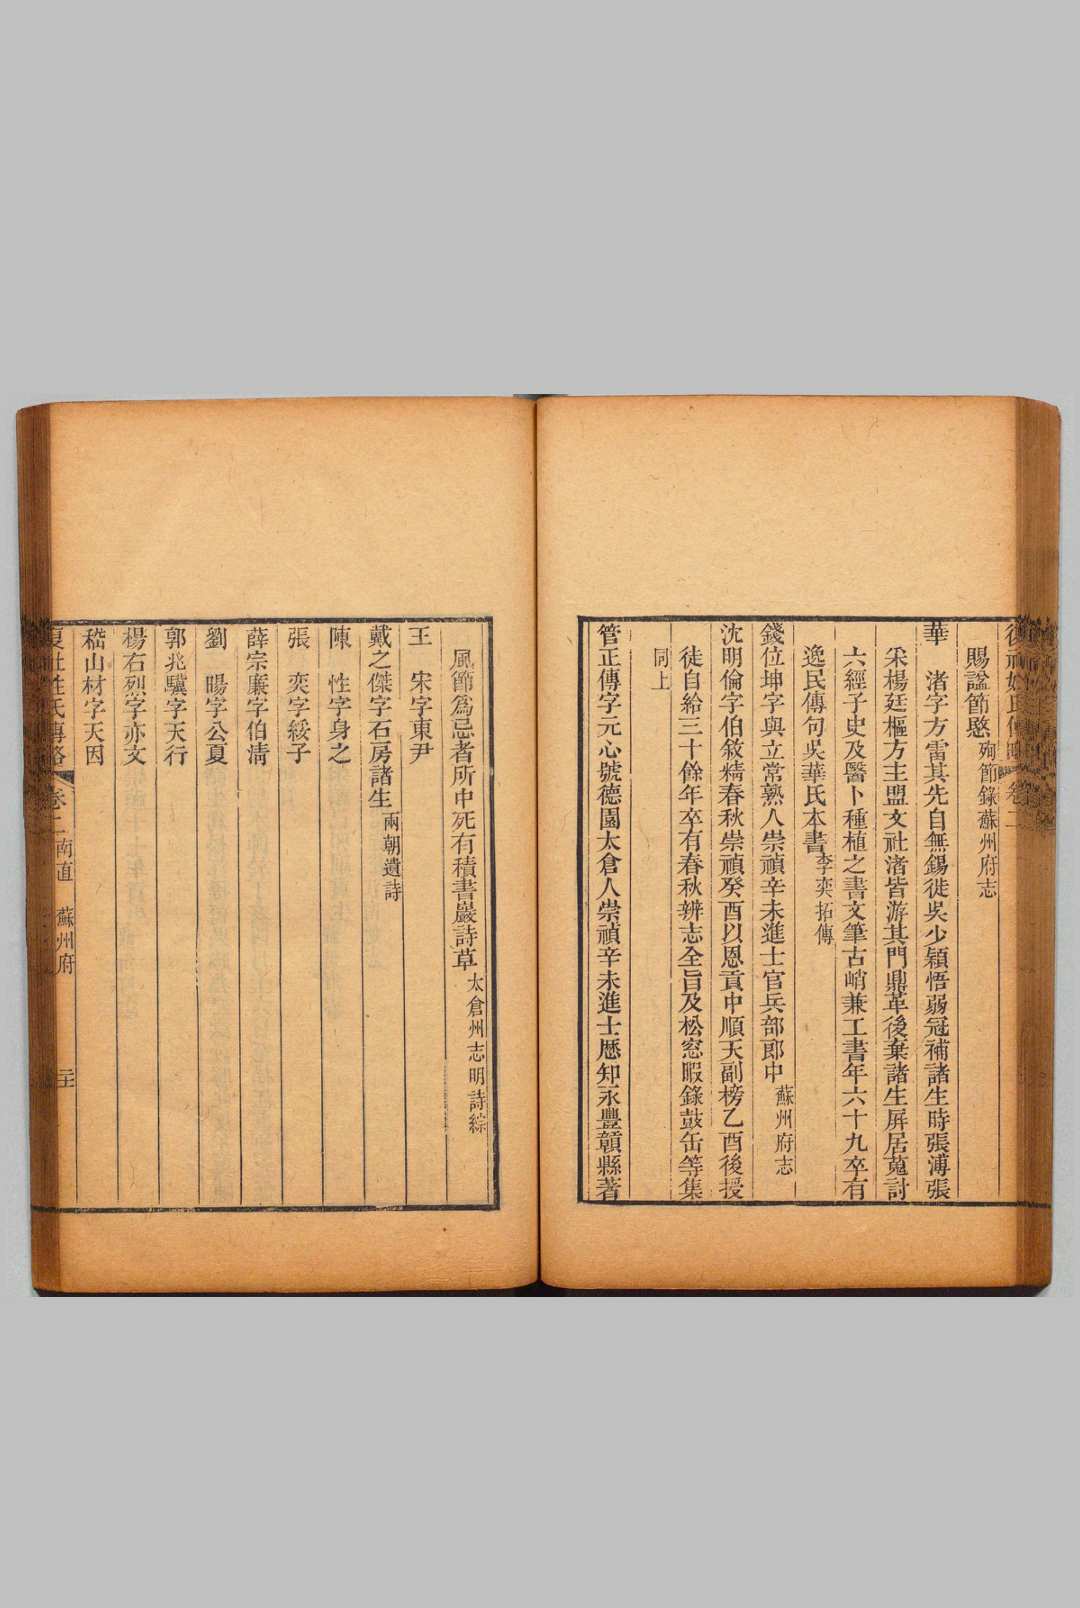 復社姓氏傳略 卷二
賜諡節愍 殉節錄蘇州府志
華　渚字方雷其先自無錫徙吳少穎悟弱冠補諸生時張溥張
采楊廷樞方主盟文社渚皆游其門鼎革後棄諸生屏居蒐討
六經子史及醫卜種植之書文筆古峭兼工書年六十九卒有
逸民傳句吳華氏本書 李奕拓傳
錢位坤字與立常熟人崇禎辛未進士官兵部郎中 蘇州府志
沈明倫字伯敘精春秋崇禎癸酉以恩貢中順天副榜乙酉後授
徒自給三十餘年卒有春秋辨志全旨及松窓暇錄鼓缶等集
同上
管正傳字元心號德園太倉人崇禎辛未進士歷知永豐贛縣著
風節爲忌者所中死有積書巖詩草 太倉州志明詩綜
王　宋字東尹
戴之傑字石房諸生 兩朝遺詩
陳　性字身之
張　奕字綏子
薛宗廉字伯淸
劉　暘字公夏
郭兆驥字天行
楊右烈字亦文
嵇山材字天因
復社姓氏傳略 卷二 南直 蘇州府 二十